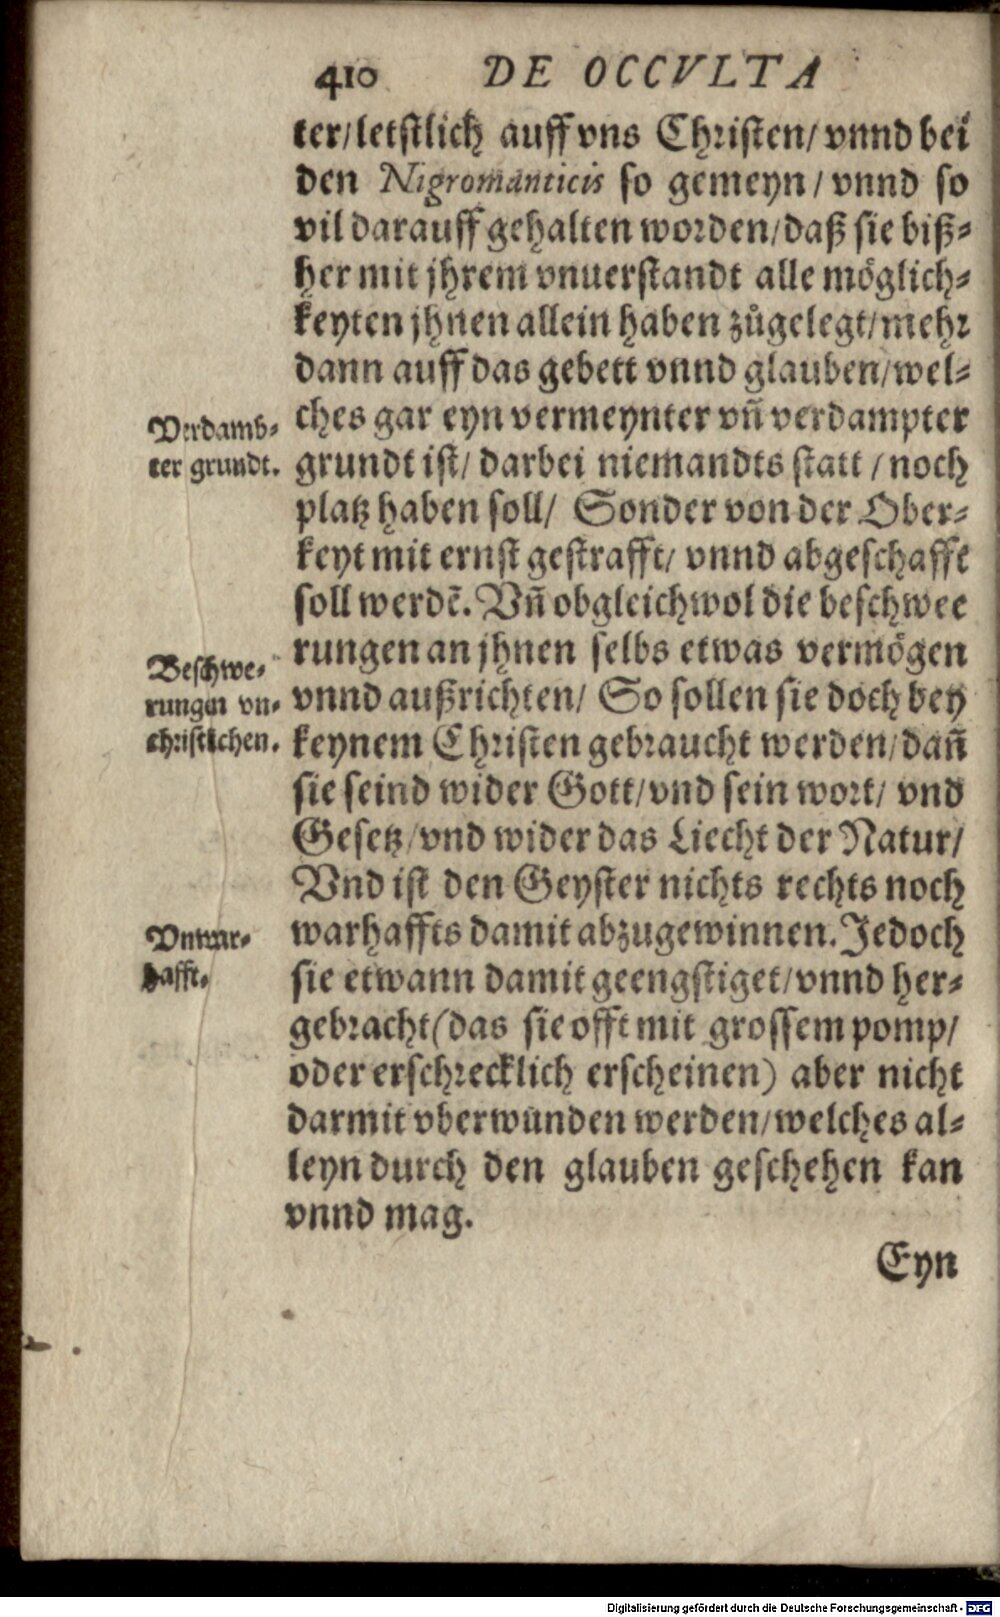 410 DE OCCVLTA
ter/letstlich auff vns Christen/vnnd bei
den Nigromanticis so gemeyn/vnnd so
vil darauff gehalten worden/daß sie biß-
her mit jhrem vnuerstandt alle möglich-
keyten jhnen allein haben zůgelegt/mehr
dann auff das gebett vnnd glauben/wel-
ches gar eyn vermeynter vñ verdampter
Verdamb-
ter grundt.
grundt ist/darbei niemandts statt/noch
platz haben soll/ Sonder von der Ober-
keyt mit ernst gestrafft/ vnnd abgeschafft
soll werdẽ. Vñ obgleichwol die beschwee
rungen an jhnen selbs etwas vermögen
Beschwe-
rungen vn-
christlichen.
vnnd außrichten/ So sollen sie doch bey
keynem Christen gebraucht werden/dañ
sie seind wider Gott/vnd sein wort/ vnd
Gesetz/vnd wider das Liecht der Natur/
Vnd ist den Geyster nichts rechts noch
warhaffts damit abzugewinnen. Jedoch
Vnwar-
hafft.
sie etwann damit geengstiget/vnnd her-
gebracht(das sie offt mit grossem pomp/
oder erschrecklich erscheinen) aber nicht
darmit vberwunden werden/welches al-
leyn durch den glauben geschehen kan
vnnd mag.
Eyn
Digitalisierung gefördert durch die Deutsche Forschungsgemeinschaft - DFG